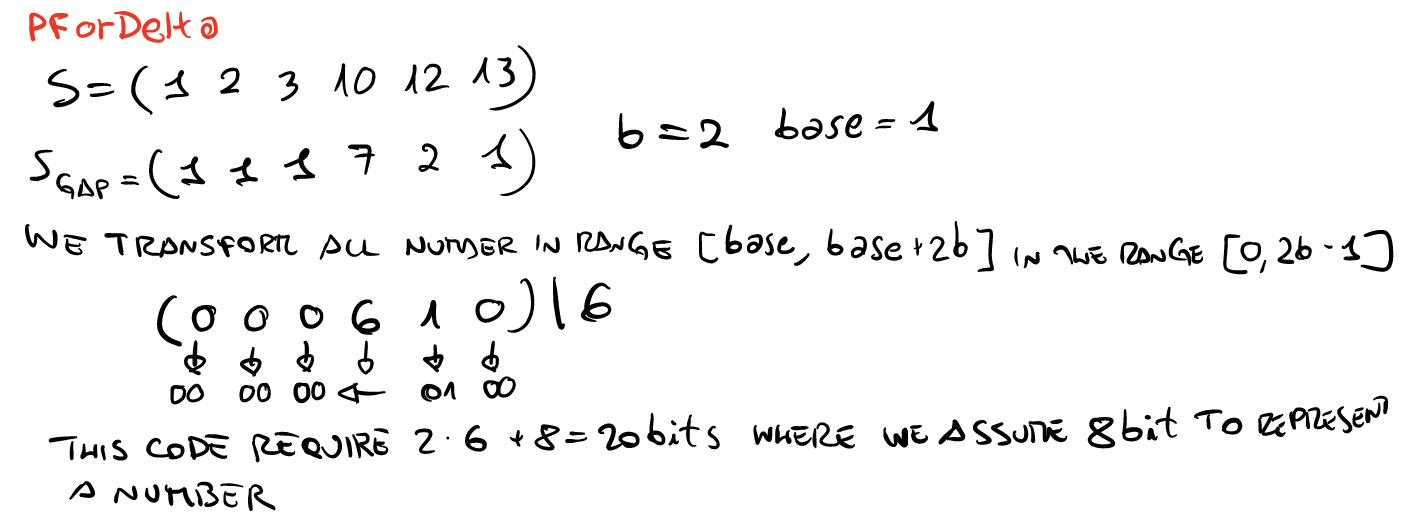 PForDelta
S=(1 2 3 10 12 13)
S GAP = (1 1 1 7 2 1)
b=2 base=1
WE TRANSFORM ALL NUMBER IN RANGE [base, base+2b] IN THE RANGE [0,2b-1]
(0 0 0 6 1 0)|6
↓ ↓ ↓ ↓ ↓ ↓
00 00 00 ← 01 00
THIS CODE REQUIRE 2·6+8=20bits WHERE WE ASSUME 8bit TO REPRESENT
A NUMBER